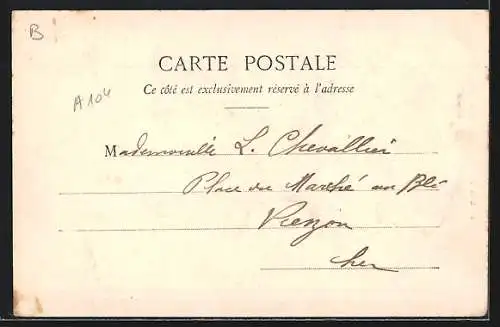 B
A104
CARTE POSTALE
Ce côté est exclusivement réservé à l'adresse
Mademoiselle L. Chevallier
Place du Marché au Blé
Vierzon
Cher